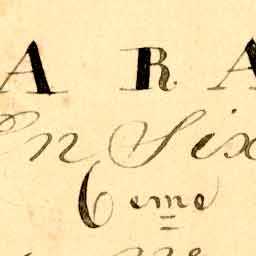 A R A
En Six
6eme